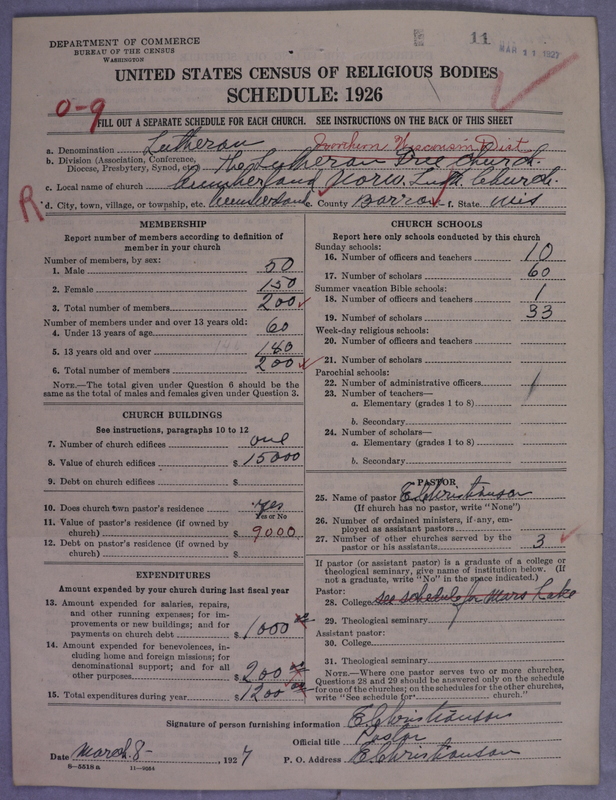 DEPARTMENT OF COMMERCE
BUREAU OF THE CENSUS
WASHINGTON
11
MAR 11 1927
UNITED STATES CENSUS OF RELIGIOUS BODIES
SCHEDULE: 1926
0-9
FILL OUT A SEPARATE SCHEDULE FOR EACH CHURCH. SEE INSTRUCTIONS ON THE BACK OF THIS SHEET
a. Denomination Lutheran Wisconsin Dist
b. Division (Association, Conference, Diocese, Presbytery, Synod, etc.) The Lutheran Free Church.
c. Local name of church Cumberland Norw. Luth. Church.
R
d. City, town, village, or township, etc. Cumberland e. County Barron f. State Wis
MEMBERSHIP
Report number of members according to definition of
member in your church
Number of members, by sex:
1. Male 50
2. Female 150
3. Total number of members 200
Number of members under and over 13 years old:
4. Under 13 years of age 60
5. 13 years old and over 180
6. Total number of members 200
NOTE.—The total given under Question 6 should be the
same as the total of males and females given under Question 3.
CHURCH BUILDINGS
See instructions, paragraphs 10 to 12
7. Number of church edifices one
8. Value of church edifices $ 15000
9. Debt on church edifices $
10. Does church own pastor's residence yes
Yes or No
11. Value of pastor's residence (if owned by
church) $ 9000
12. Debt on pastor's residence (if owned by
church) $
EXPENDITURES
Amount expended by your church during last fiscal year
13. Amount expended for salaries, repairs,
and other running expenses; for im-
provements or new buildings; and for
payments on church debt $ 1000
14. Amount expended for benevolences, in-
cluding home and foreign missions; for
denominational support; and for all
other purposes $ 200
15. Total expenditures during year $ 1200
CHURCH SCHOOLS
Report here only schools conducted by this church
Sunday schools:
16. Number of officers and teachers 10
17. Number of scholars 60
Summer vacation Bible schools:
18. Number of officers and teachers 1
19. Number of scholars 33
Week-day religious schools:
20. Number of officers and teachers
21. Number of scholars
Parochial schools:
22. Number of administrative officers
23. Number of teachers—
a. Elementary (grades 1 to 8)
b. Secondary
24. Number of scholars—
a. Elementary (grades 1 to 8)
b. Secondary
PASTOR
25. Name of pastor E Christianson
(If church has no pastor, write "None")
26. Number of ordained ministers, if any, em-
ployed as assistant pastors
27. Number of other churches served by the
pastor or his assistants 3
If pastor (or assistant pastor) is a graduate of a college or
theological seminary, give name of institution below. (If
not a graduate, write "No" in the space indicated.)
Pastor:
28. College see schedule for Lake
29. Theological seminary
Assistant pastor:
30. College
31. Theological seminary
NOTE.—Where one pastor serves two or more churches,
Questions 28 and 29 should be answered only on the schedule
for one of the churches; on the schedules for the other churches,
write "See schedule for church."
Signature of person furnishing information E Christianson
Official title Pastor
Date March 8- , 1927 P. O. Address E Christianson
8-5518a 11-9264